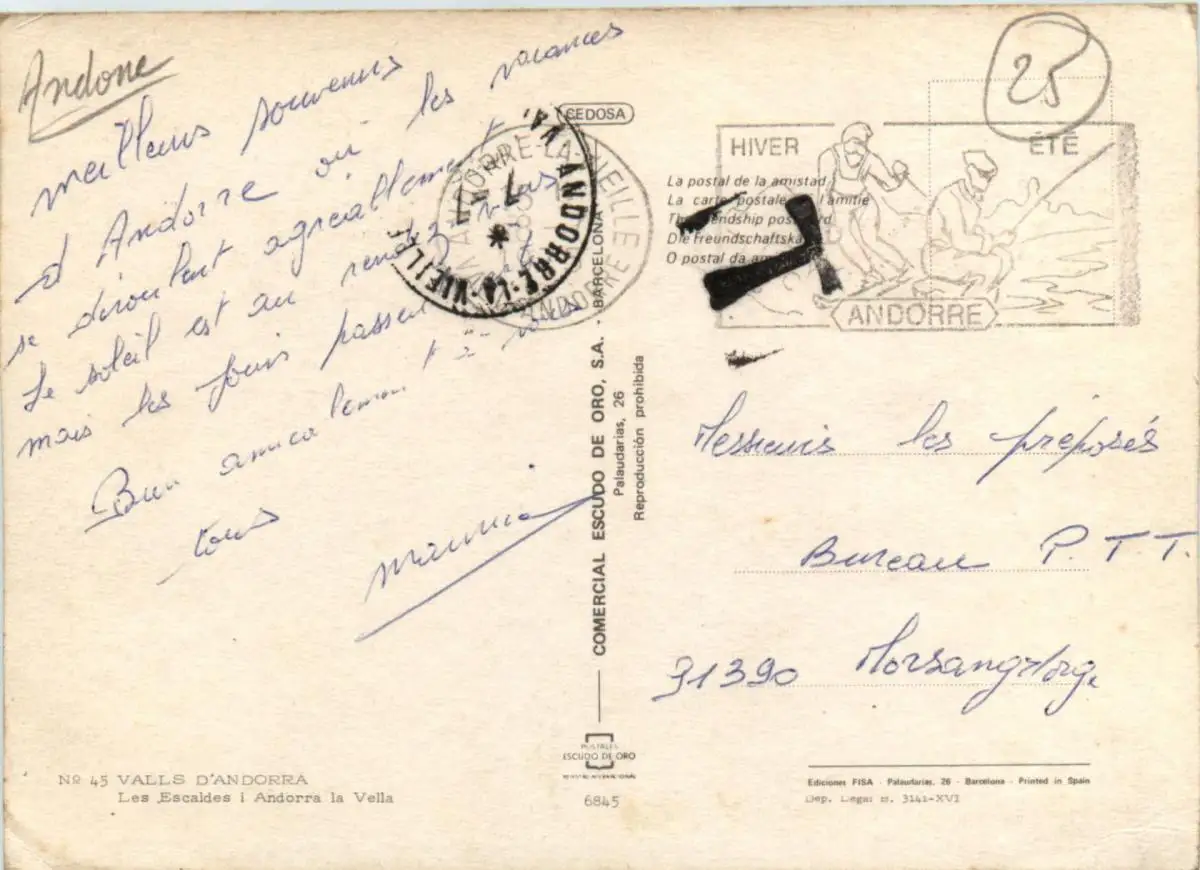 Andorre
25
meilleurs souvenirs
d'Andorre où les vacances
se déroulent agréablement
Le soleil est au rendez-vous
mais les jours passent
Bien amicalement à vous
tous
CEDOSA
ANDORRE-LA-VIEILLE
ANDORRE
ANDORRE-LA-VIEILLE
HIVER
ÉTÉ
ANDORRE
La postal de la amistad
La carte postale de l'amitié
The friendship postcard
Die Freundschaftska
O postal da am
T
COMERCIAL ESCUDO DE ORO, S.A. - BARCELONA
Palaudarias, 26
Reproducción prohibida
Messieurs les préposés
Bureau P.T.T.
91390 Morsang s/Orge
POSTALES
ESCUDO DE ORO
Nº 45 VALLS D'ANDORRA
Les Escaldes i Andorra la Vella
6845
Ediciones FISA - Palaudarias, 26 - Barcelona - Printed in Spain
Dep. Legal B. 3141-XVI